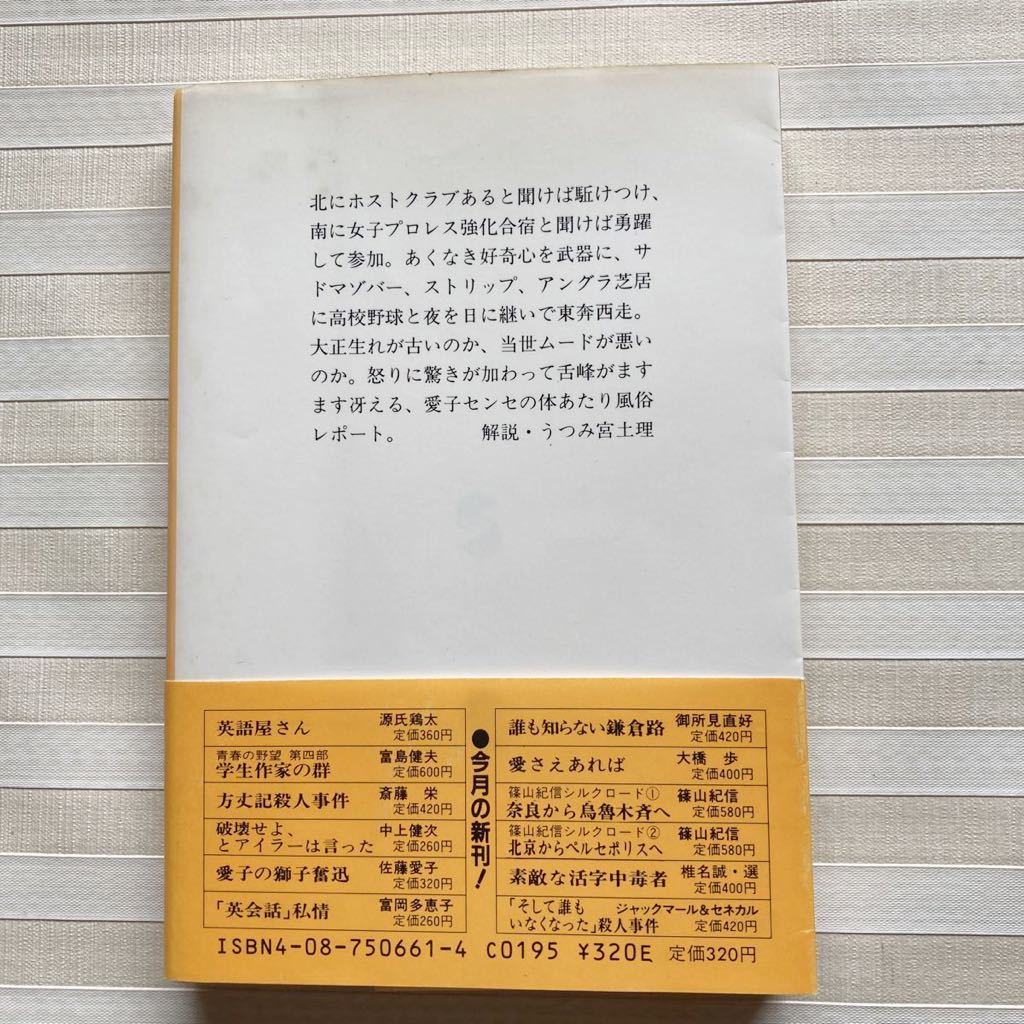 北にホストクラブあると聞けば駈けつけ、
南に女子プロレス強化合宿と聞けば勇躍
して参加。あくなき好奇心を武器に、サ
ドマゾバー、ストリップ、アングラ芝居
に高校野球と夜を日に継いで東奔西走。
大正生れが古いのか、当世ムードが悪い
のか。怒りに驚きが加わって舌峰がます
ます冴える、愛子センセの体あたり風俗
レポート。 解説・うつみ宮土理
英語屋さん 源氏鶏太 定価360円
青春の野望 第四部
学生作家の群 富島健夫 定価600円
方丈記殺人事件 斎藤 栄 定価420円
破壊せよ、
とアイラーは言った 中上健次 定価260円
愛子の獅子奮迅 佐藤愛子 定価320円
「英会話」私情 富岡多恵子 定価260円
●今月の新刊!
誰も知らない鎌倉路 御所見直好 定価420円
愛さえあれば 大橋 歩 定価400円
篠山紀信シルクロード①
奈良から烏魯木斉へ 篠山紀信 定価580円
篠山紀信シルクロード②
北京からペルセポリスへ 篠山紀信 定価580円
素敵な活字中毒者 椎名誠・選 定価400円
「そして誰も
いなくなった」殺人事件 ジャックマール&セネカル 定価420円
ISBN4-08-750661-4 C0195 ¥320E 定価320円